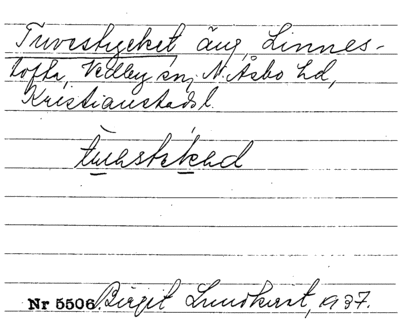 Tuvestycket, äng, Linnes-
tofta, Vedby sn, N. Åsbo hd,
Kristianstads l.
Nr 5506 Birgit Lundkvist, 1937.